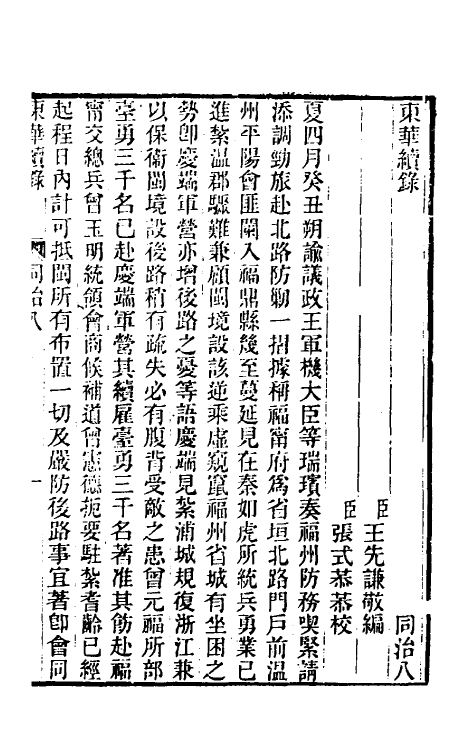 東華續錄
同治八
臣王先謙敬編
臣張式恭恭校
夏四月癸丑朔諭議政王軍機大臣等瑞璸奏福州防務喫緊請
添調勁旅赴北路防勦一摺據稱福甯府爲省垣北路門戶前溫
州平陽會匪闌入福鼎縣幾至蔓延見在秦如虎所統兵勇業已
進紮溫郡驟難兼顧閩境設該逆乘虛窺竄福州省城有坐困之
勢卽慶端軍營亦增後路之憂等語慶端見紮浦城規復浙江兼
以保衛閩境設後路稍有疏失必有腹背受敵之患曾元福所部
臺勇三千名已赴慶端軍營其續雇臺勇三千名著准其飭赴福
甯交總兵曾玉明統領會商候補道曾憲德扼要駐紮耆齡已經
起程日內計可抵閩所有布置一切及嚴防後路事宜著卽會同
東華續錄
同治八
一